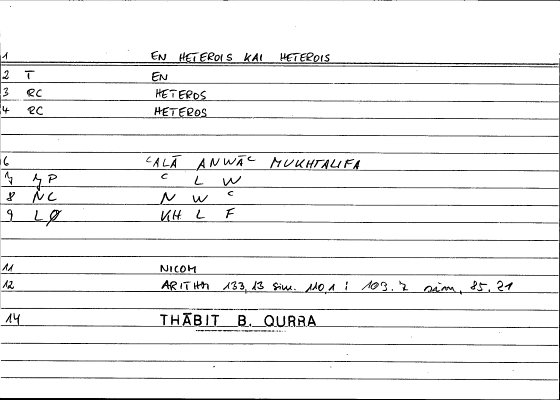 1 EN HETEROIS KAI HETEROIS
2 T EN
3 RC HETEROS
4 RC HETEROS
6 ᶜALĀ ANWĀᶜ MUKHTALIFA
7 P ᶜ L W
8 NC N W ᶜ
9 LØ KH L F
11 NICOM
12 ARITHM 133,13 sim. 110,1 : 103.7 sim. 85.21
14 THĀBIT B. QURRA